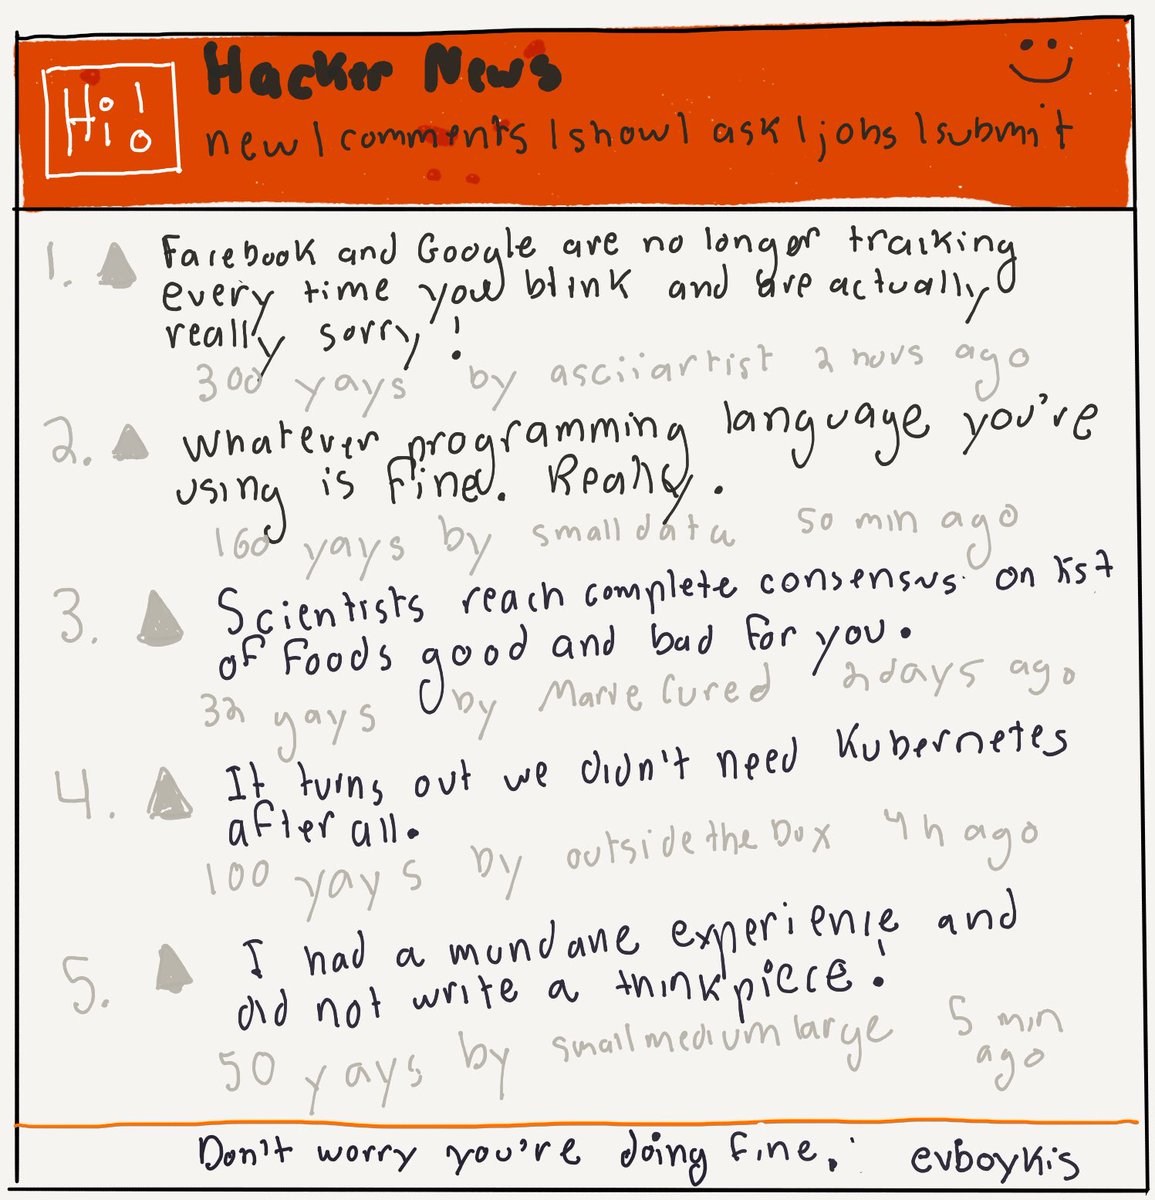 Hi!
Hacker News
new | comments | show | ask | jobs | submit
1. Facebook and Google are no longer tracking
every time you blink and are actually
really sorry!
300 yays by asciiartist 2 hours ago
2. Whatever programming language you're
using is fine. Really.
160 yays by smalldata 50 min ago
3. Scientists reach complete consensus on list
of foods good and bad for you.
32 yays by Marie Cured 2 days ago
4. It turns out we didn't need Kubernetes
after all.
100 yays by outsidethebox 4h ago
5. I had a mundane experience and
did not write a thinkpiece!
50 yays by smallmediumlarge 5 min
ago
Don't worry you're doing fine. evboykis